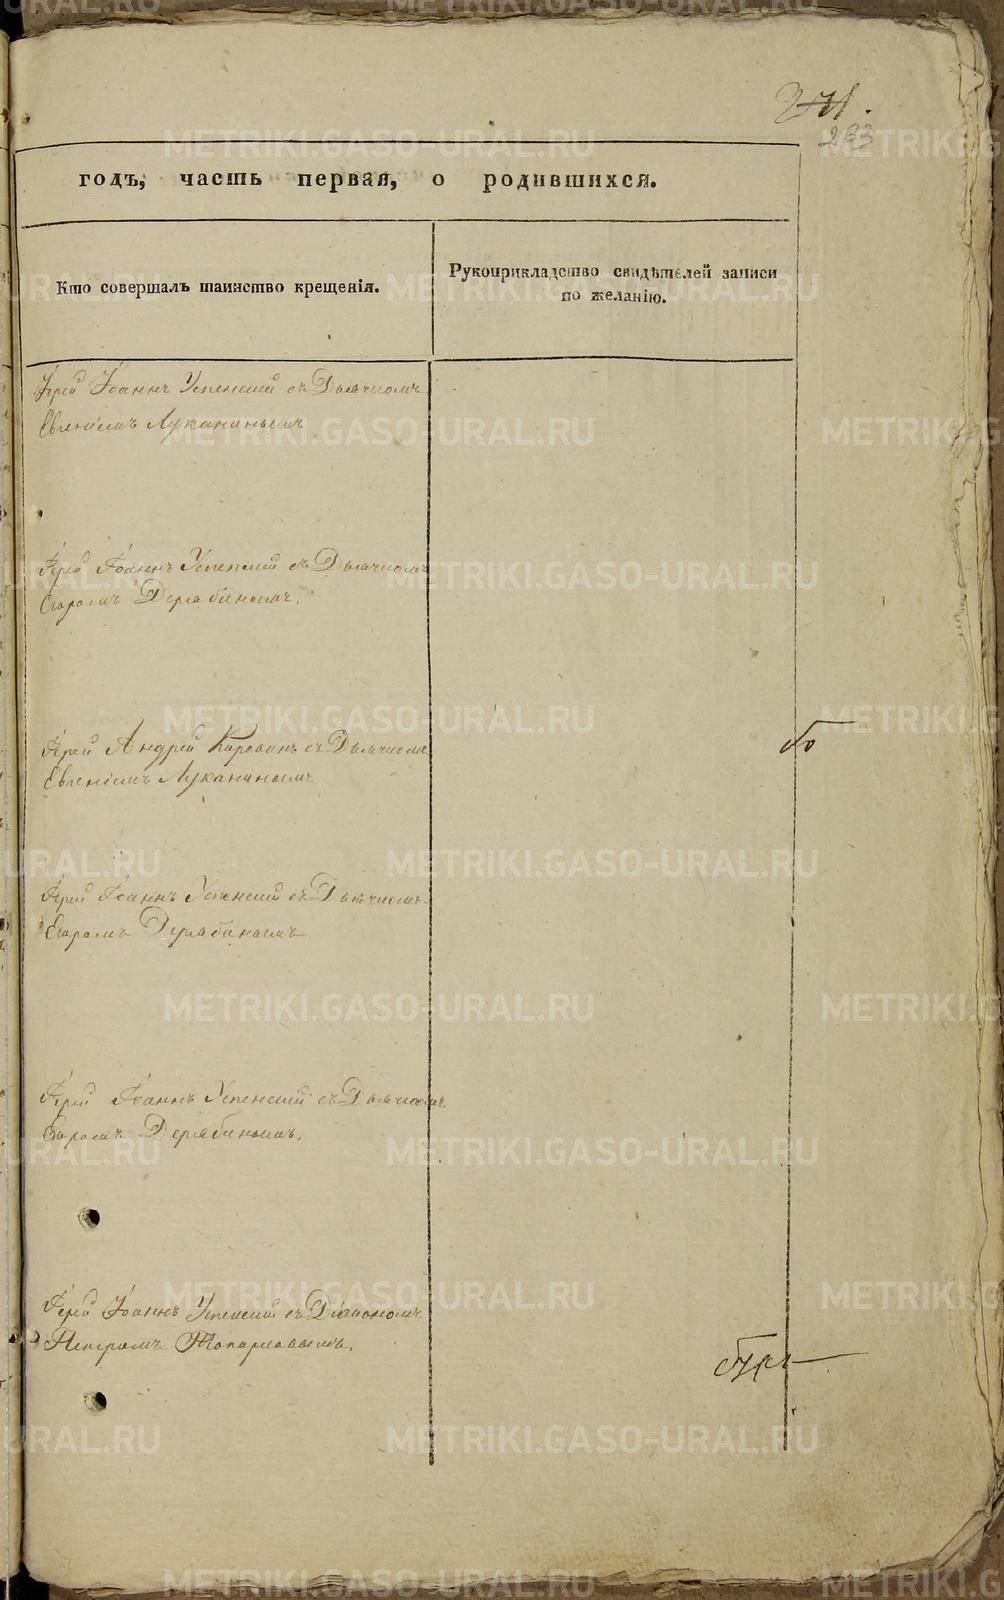 233
годъ, часть первая, о родившихся.
Кто совершалъ таинство крещенія.
Рукоприкладство свидѣтелей записи
по желанію.
Іерей Іоаннъ Успенскій съ Дьячкомъ
Евгеніемъ Луканинымъ
Іерей Іоаннъ Успенскій съ Дьячкомъ
Егоромъ Дерябинымъ.
Іерей Андрей съ Дьячкомъ
Евгеніемъ Луканинымъ
Іерей Іоаннъ Успенскій съ Дьячкомъ
Егоромъ Дерябинымъ
Іерей Іоаннъ Успенскій съ Дьячкомъ
Егоромъ Дерябинымъ.
Іерей Іоаннъ Успенскій съ Діакономъ
Петромъ
METRIKI.GASO-URAL.RU